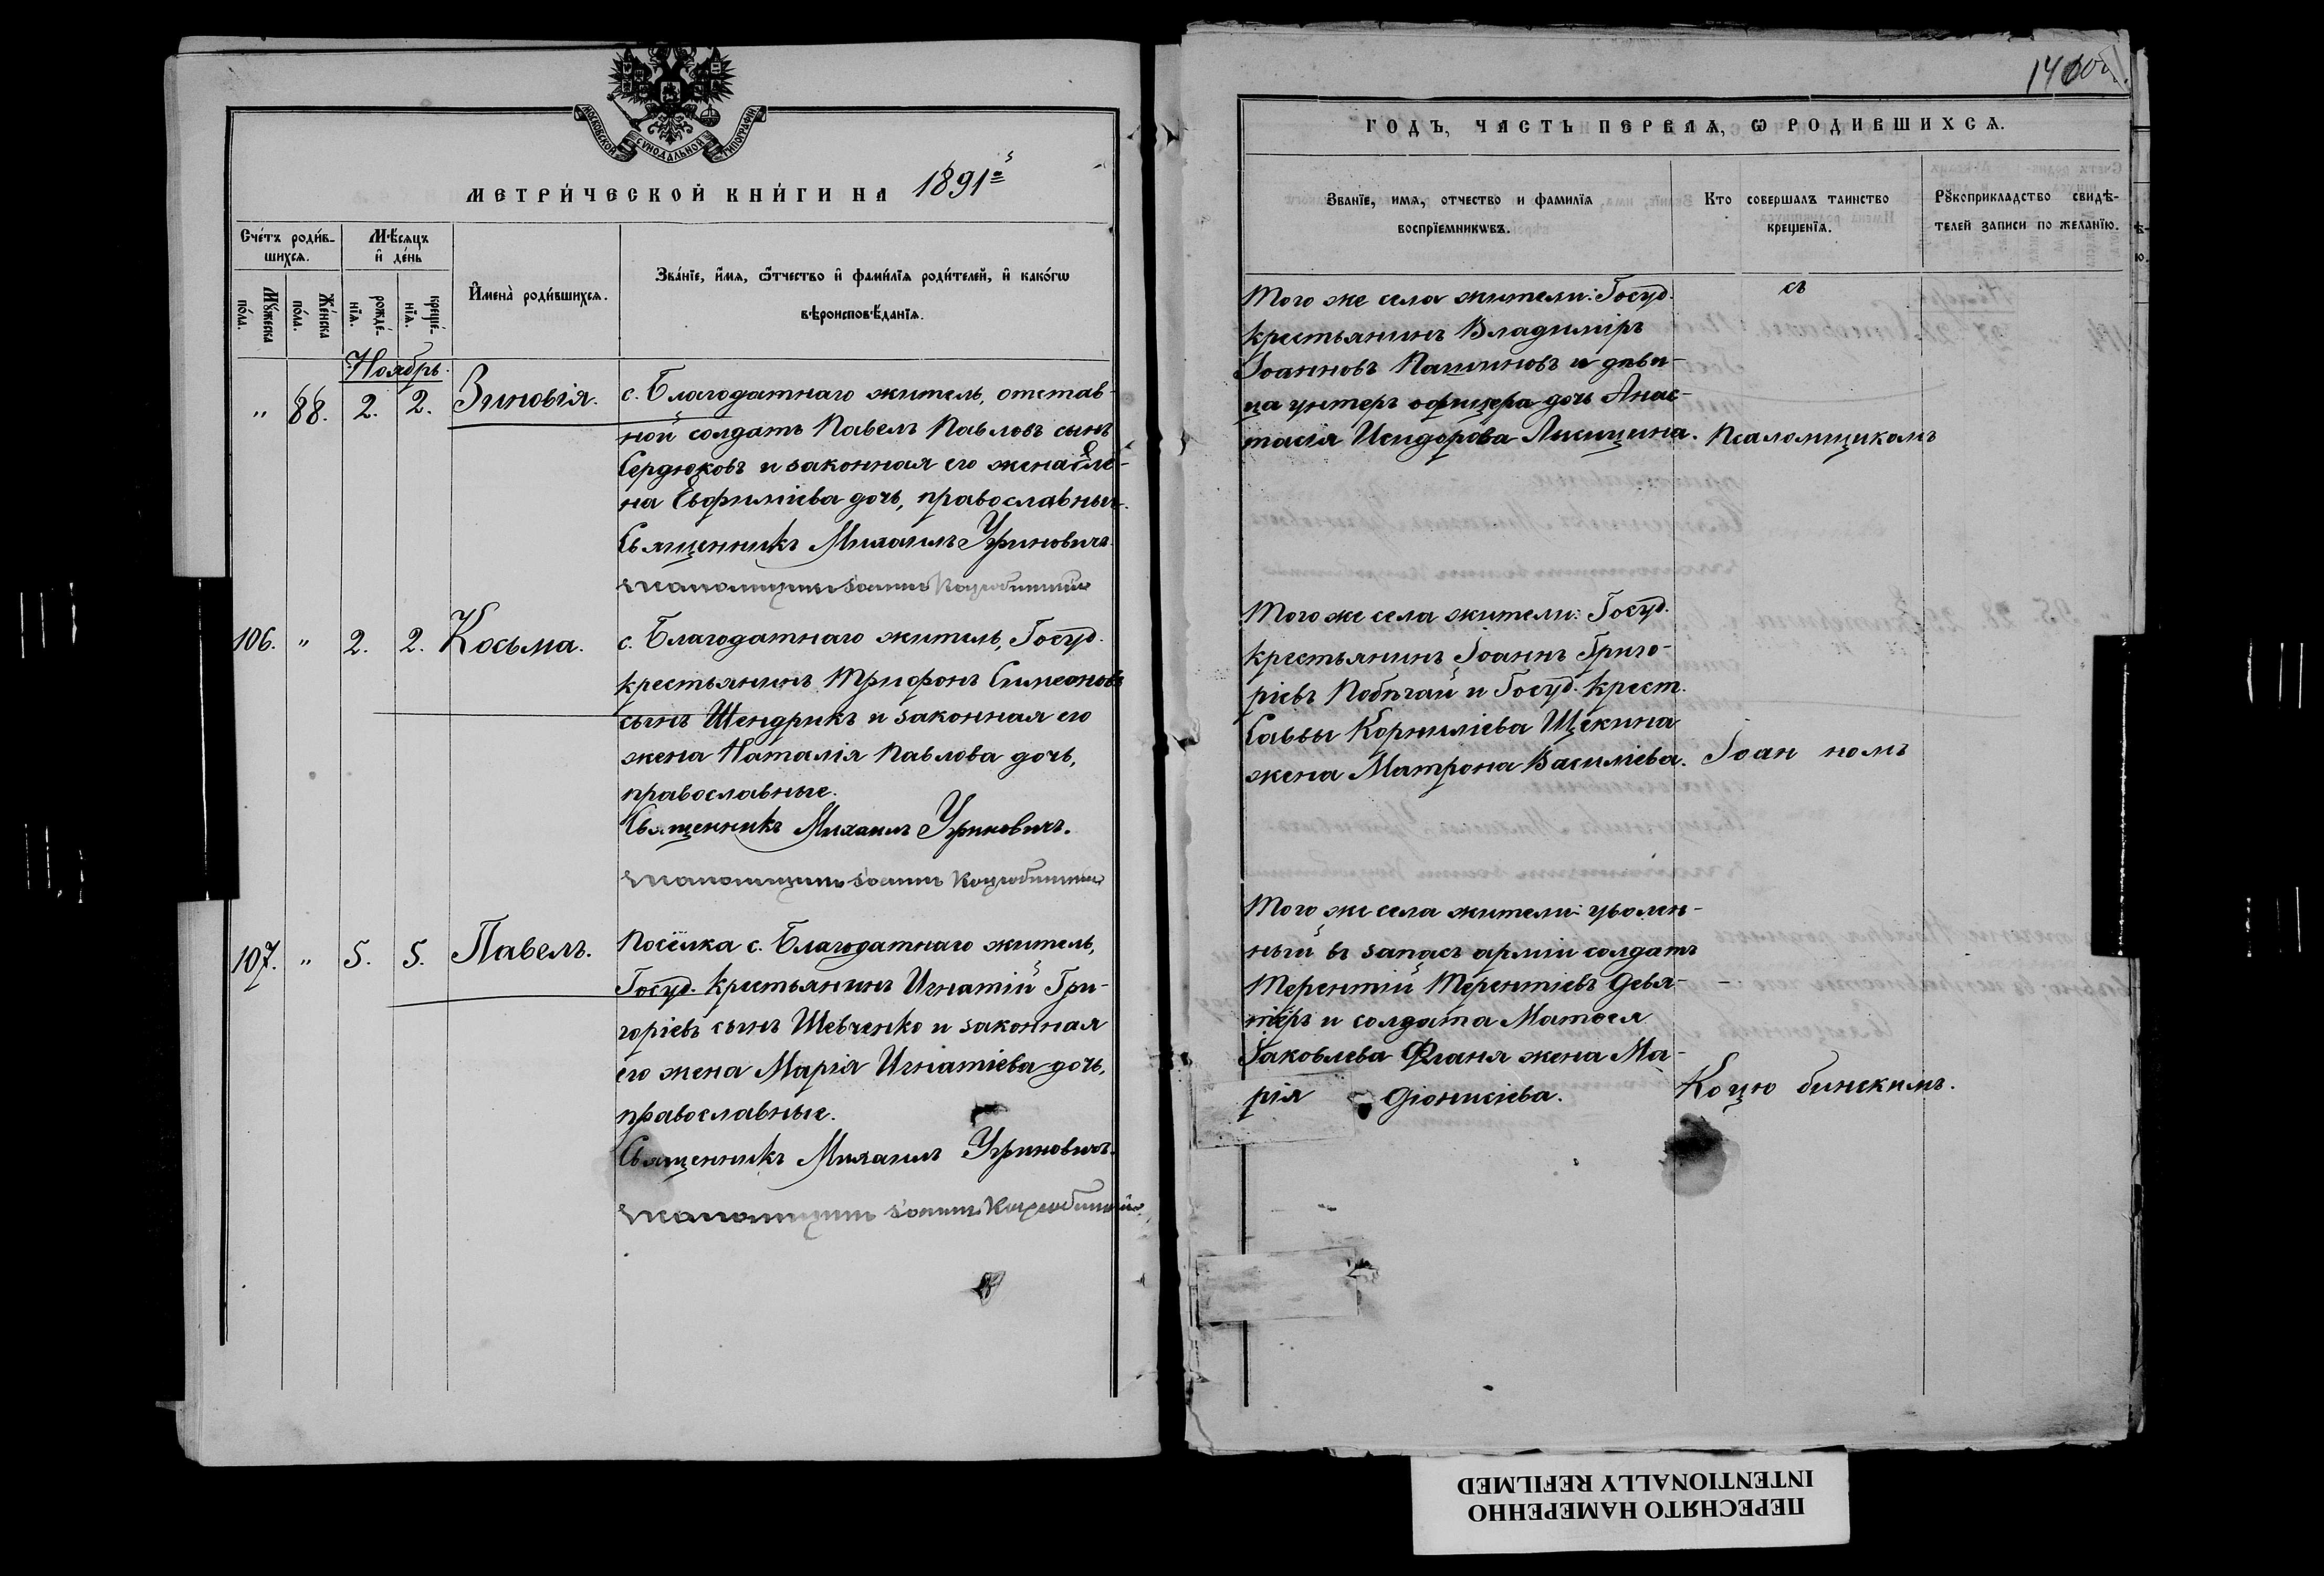 МОСКОВСКОЙ СѴНОДАЛЬНОЙ ТИПОГРАФІИ
МЕТРИ́ЧЕСКОЙ КНИ́ГИ НА 1891й
Сче́тъ роди́в-
шихсѧ.
Мѣ́сѧцъ
и҆ де́нь
И҆мена̀ роди́вшихсѧ.
Зва́нїе, и҆́мѧ, ѻ҆́тчество и҆ фами́лїѧ роди́телей, и҆ како́гѡ
вѣроисповѣ́данїѧ.
Мꙋ́жеска
по́ла.
Же́нска
по́ла.
рожде́-
нїѧ.
креще́-
нїѧ.
Ноябрь.
" 88. 2. 2. Зиновія.
с. Благодатнаго житель, отстав-
ной солдатъ Павелъ Павловъ сынъ
Сердюковъ и законная его жена Еле-
на Евфиміева дочь, православные.
Священникъ Михаилъ Угриновичъ.
Псаломщикъ Іоаннъ Коцюбинскій
106. " 2. 2. Косьма.
с. Благодатнаго житель, Госуд.
крестьянинъ Трифонъ Симеоновъ
сынъ Шендрикъ и законная его
жена Наталія Павлова дочь,
православные.
Священникъ Михаилъ Угриновичъ.
Псаломщикъ Іоаннъ Коцюбинскій
107. " 5. 5. Павелъ.
Посёлка с. Благодатнаго житель,
Госуд. крестьянинъ Игнатій Гри-
горіевъ сынъ Шевченко и законная
его жена Марія Игнатіева дочь,
православные.
Священникъ Михаилъ Угриновичъ.
Псаломщикъ Іоаннъ Коцюбинскій
ГОДЪ, ЧАСТЬ ПЕРВАѦ, Ѡ РОДИВШИХСѦ.
Званїе, имѧ, отчество и фамилїѧ
воспрїемникѡвъ.
Кто совершалъ таинство
крещенїѧ.
Рꙋкоприкладство свидѣ-
телей записи по желанїю.
Того же села жители: Госуд.
крестьянинъ Владиміръ
Іоанновъ Пашиновъ и дѣви-
ца унтеръ офицера дочь Анас-
тасія Исидорова Лисицина.
съ
Псаломщикомъ
Того же села жители: Госуд.
крестьянинъ Іоаннъ Григо-
ріевъ Побѣгай и Госуд. крест.
Саввы Корниліева Щекина
жена Матрона Василіева.
Іоан номъ
Того же села жители: уволен-
ный въ запасъ арміи солдатъ
Терентій Терентіевъ Девя-
теръ и солдата Матѳея
Іаковлева жена Ма-
рія Діонисіева.
Коцю бинскимъ.
INTENTIONALLY REFILMED
ПЕРЕСНЯТО НАМЕРЕННО